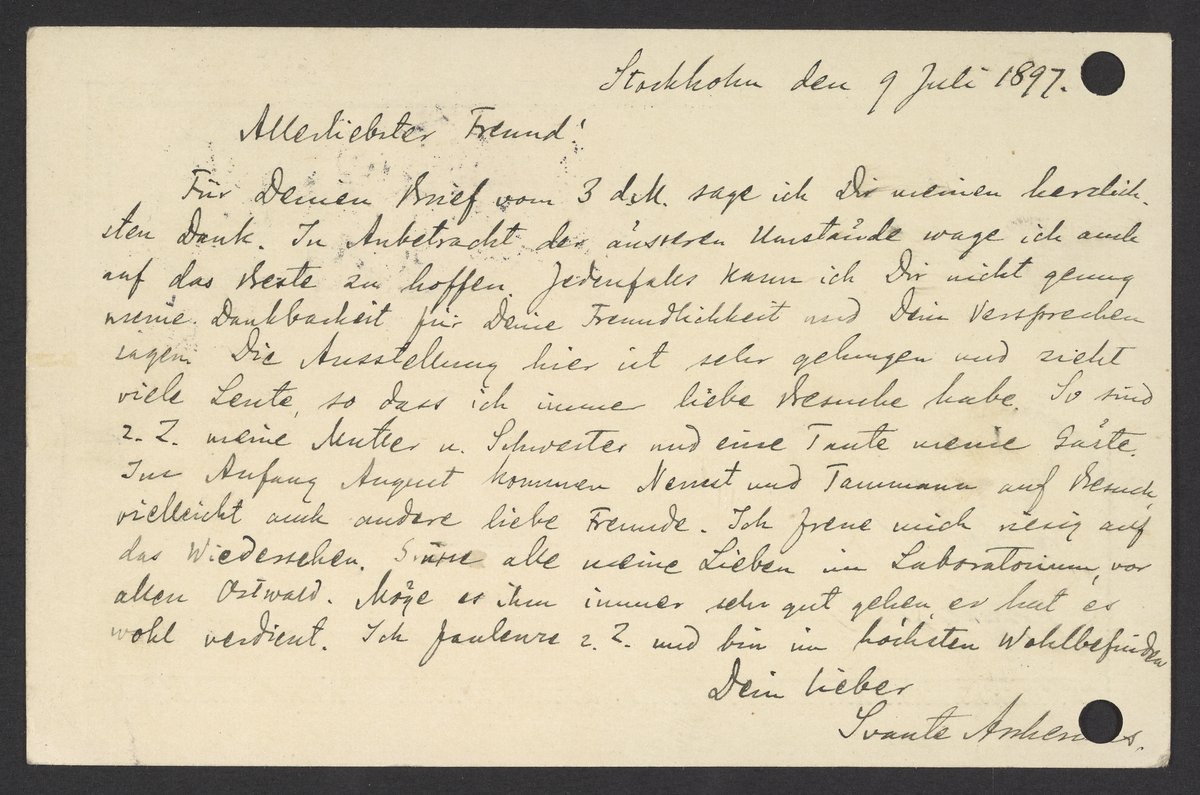 Stockholm den 9 Juli 1897.
Allerliebster Freund!
Für Deinen Brief vom 3 d.M. sage ich Dir meinen herzlich-
sten Dank. In Anbetracht der äusseren Umstände wage ich auch
auf das Beste zu hoffen. Jedenfalls kann ich Dir nicht genug
meine Dankbarkeit für Deine Freundlichkeit und Dein Versprechen
sagen. Die Ausstellung hier ist sehr gelungen und zieht
viele Leute, so dass ich immer liebe Besuche habe. So sind
z. Z. meine Mutter u. Schwester und eine Tante meine Gäste.
Im Anfang August kommen Nernst und Tammann auf Besuch,
vielleicht auch andere liebe Freunde. Ich freue mich riesig auf
das Wiedersehen. Grüsse alle meine Lieben im Laboratorium, vor
allen Ostwald. Möge es ihm immer sehr gut gehen, er hat es
wohl verdient. Ich faulenze z. Z. und bin im höchsten Wohlbefinden
Dein lieber
Svante Arrhenius.